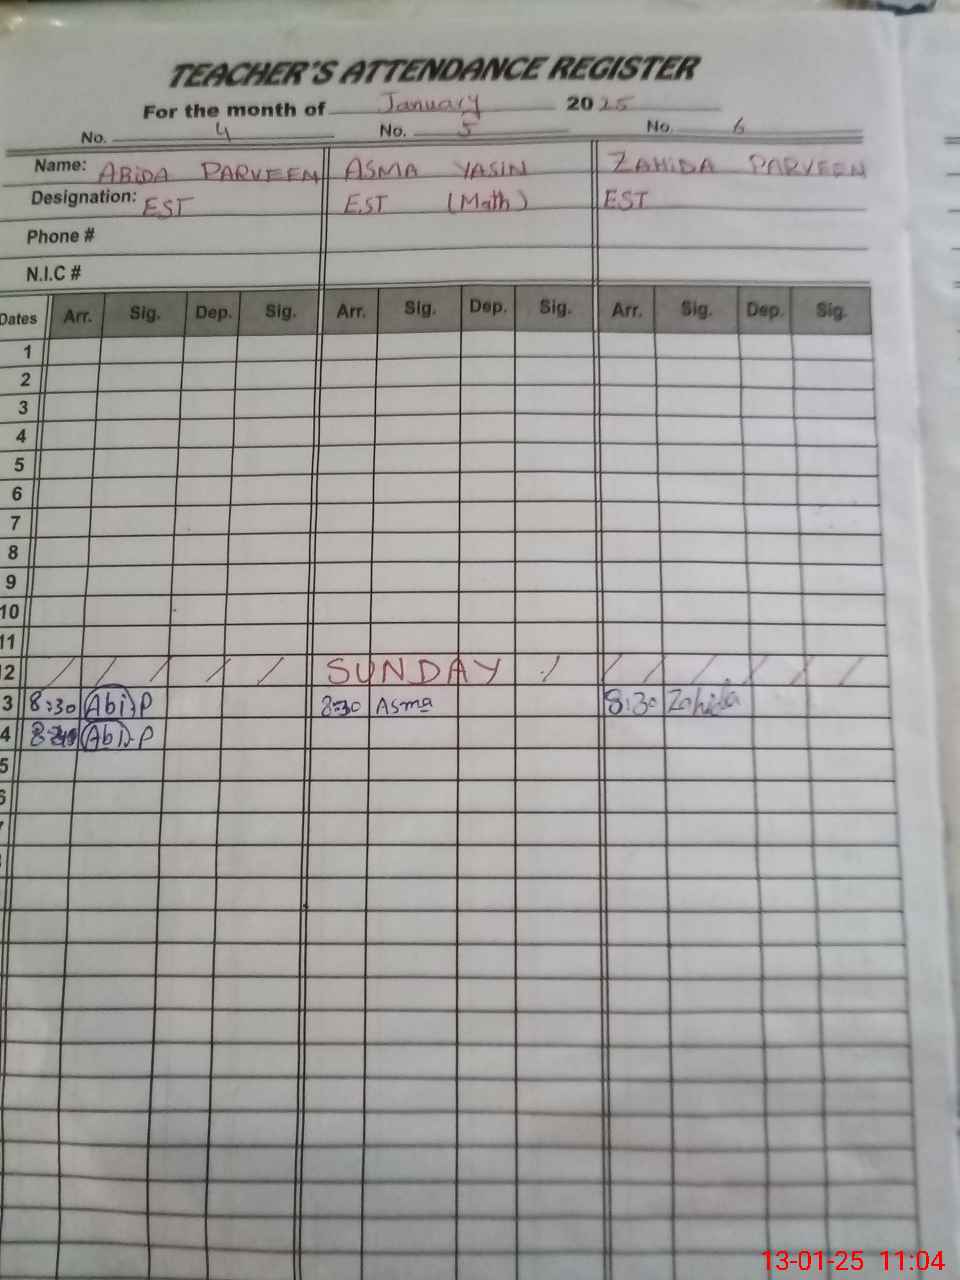 TEACHER'S ATTENDANCE REGISTER
For the month of January 2025
No. 4 No. 5 No. 6
Name: ABIDA PARVEEN ASMA YASIN ZAHIDA PARVEEN
Designation: EST EST (Math) EST
Phone #
N.I.C #
Dates Arr. Sig. Dep. Sig. Arr. Sig. Dep. Sig. Arr. Sig. Dep. Sig.
1
2
3
4
5
6
7
8
9
10
11
2 SUNDAY
3 8:30 Abi.P 8:30 Asma 8:30 Zahida
4 Abi.P
5
6
7
13-01-25 11:04